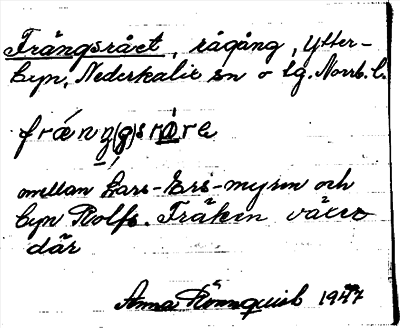 Trångsrået, rågång, Ytter-
byn, Nederkalix sn o tg. Norrb. l.
mellan Lars-Ers-myren och
byn Rolfs. Fräken växer
där
Anna Rönnquist 1947